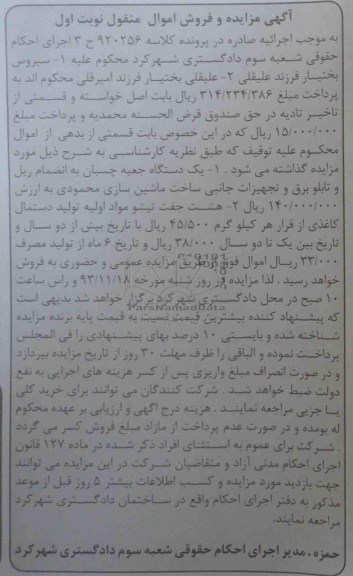 آگهی مزایده و فروش اموال منقول نوبت اول
به موجب اجرائیه صادره در پرونده کلاسه ۹۲۰۲۵۶ ح ۳ اجرای احکام
حقوقی شعبه سوم دادگستری شهرکرد محکوم علیه ۱- سیروس
بختیار فرزند علیقلی ۲- علیقلی بختیار فرزند امیرقلی محکوم اند به
پرداخت مبلغ ۳۱۴/۲۳۴/۳۸۶ ریال بابت اصل خواسته و قسمتی از
تاخیر تادیه در حق صندوق قرض الحسنه محمدیه و پرداخت مبلغ
۱۵/۰۰۰/۰۰۰ ریال که در این خصوص بابت قسمتی از بدهی از اموال
محکوم علیه توقیف که طبق نظریه کارشناسی به شرح ذیل مورد
مزایده گذاشته می شود . ۱- یک دستگاه جعبه چسبان به انضمام ریل
و تابلو برق و تجهیزات جانبی ساخت ماشین سازی محمودی به ارزش
۱۴۰/۰۰۰/۰۰۰ ریال ۲- هشت جفت تیشو مواد اولیه تولید دستمال
کاغذی از قرار هر کیلو گرم ۴۵/۵۰۰ ریال با تاریخ بیش از دو سال و
تاریخ بین یک تا دو سال ۳۸/۰۰۰ ریال و تاریخ ۶ ماه از تولید مصرف
۳۳/۰۰۰ ریال اموال فوق از طریق مزایده عمومی و حضوری به فروش
خواهد رسید . لذا مزایده در روز شنبه مورخه ۹۳/۱۱/۱۸ و راس ساعت
۱۰ صبح در محل دادگستری شهرکرد برگزار خواهد شد بدیهی است
که پیشنهاد کننده بیشترین قیمت نسبت به قیمت پایه برنده مزایده
شناخته شده و بایستی ۱۰ درصد بهای پیشنهادی را فی المجلس
پرداخت نموده و الباقی را ظرف مهلت ۳۰ روز از تاریخ مزایده بپردازد
و در صورت انصراف مبلغ واریزی پس از کسر هزینه های اجرایی به نفع
دولت ضبط خواهد شد . شرکت کنندگان می توانند برای خرید کلی
یا جزیی مراجعه نمایند . هزینه درج آگهی و ارزیابی بر عهده محکوم
له بوده و در صورت عدم پرداخت از مازاد مبلغ فروش کسر می گردد
. شرکت برای عموم به استثنای افراد ذکر شده در ماده ۱۲۷ قانون
اجرای احکام مدنی آزاد و متقاضیان شرکت در این مزایده می توانند
جهت بازدید مورد مزایده و کسب اطلاعات بیشتر ۵ روز قبل از موعد
مذکور به دفتر اجرای احکام واقع در ساختمان دادگستری شهرکرد
مراجعه نمایند.
حمزه ، مدیر اجرای احکام حقوقی شعبه سوم دادگستری شهرکرد